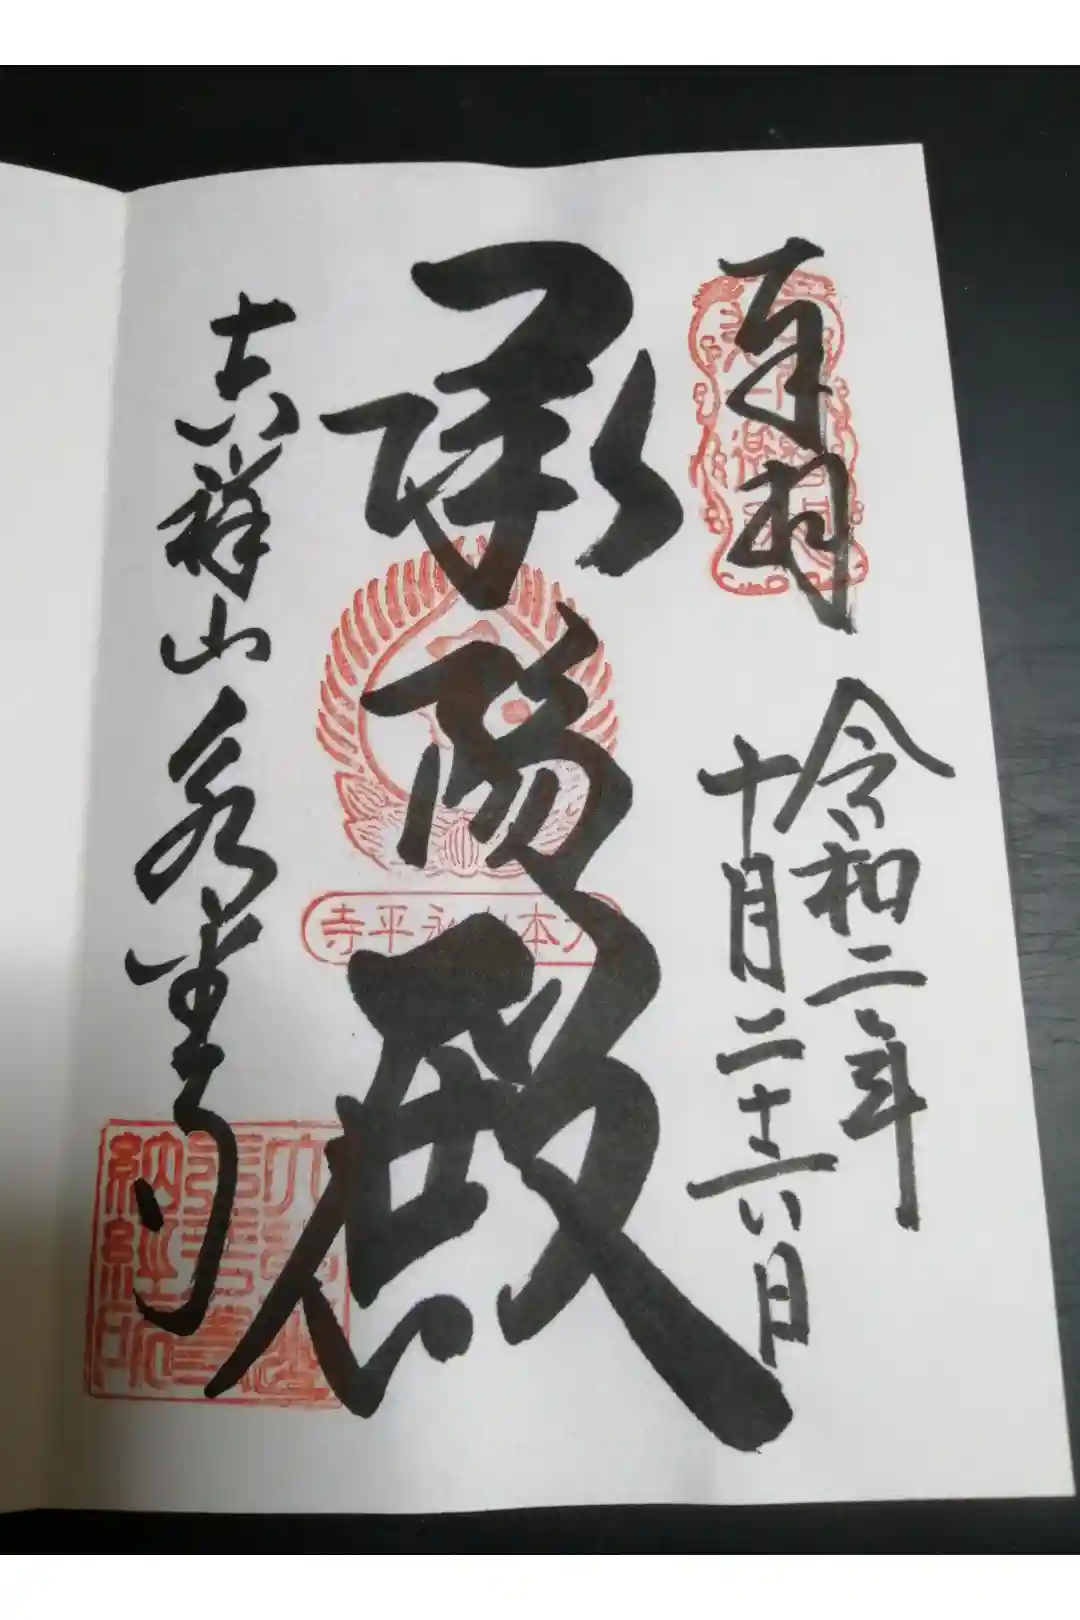 奉拝
令和二年
十月二十六日
承陽殿
本山永平寺
吉祥山永平寺
納経所